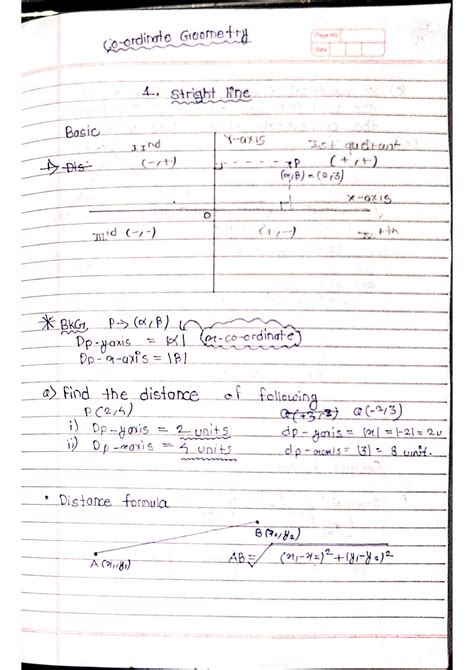 Co-ordinate Geometry
Page No.
Date
1. Stright line
Basic
IInd
(-,+)
Y-axis
Ist qudrant
(+,+)
Dis:
P
(α,β) = (2,3)
X-axis
O
IIIrd (-,-)
(+,-)
IVth
* BKG, P→(α,β)
Dp-yaxis = |α| (x-co-ordinate)
Dp-x-axis = |β|
a) Find the distance of following
P(2,4)
Q(-2,3)
i) Dp-yaxis = 2 units
dp-yaxis = |x| = |-2| = 2u
ii) Dp-xaxis = 4 units
dp-xaxis = |3| = 3 unit.
• Distance formula
B(x2,y2)
A(x1,y1)
AB = √(x1-x2)²+(y1-y2)²